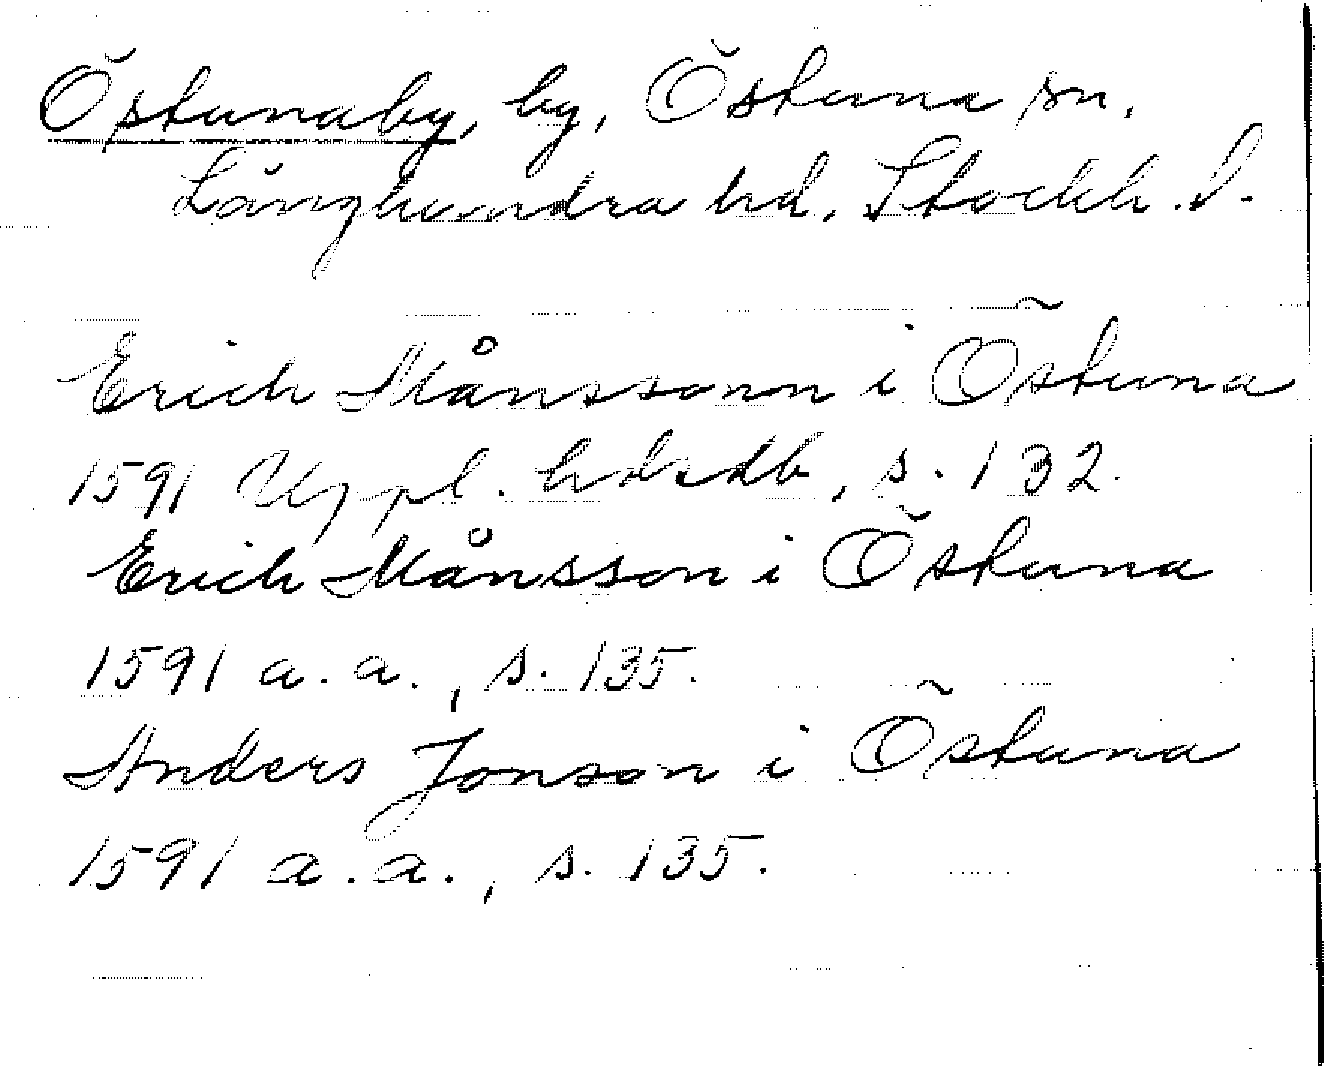 Östunaby, by, Östuna sn.
Långhundra hd. Stockh. l.
Erich Månssonn i Östuna
1591 Uppl. hdsdb, s. 132.
Erich Månsson i Östuna
1591 a. a., s. 135.
Anders Jonson i Östuna
1591 a. a., s. 135.